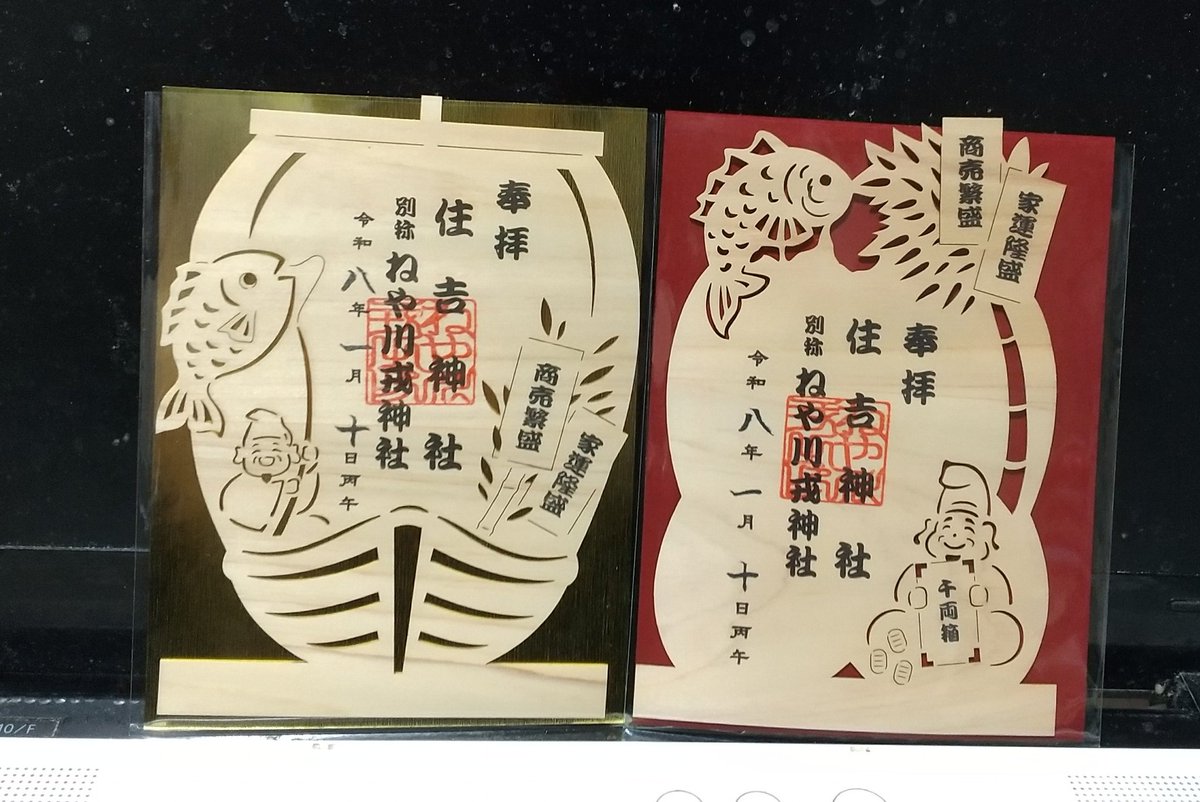 奉拝
住吉神社
別称 ねや川戎神社
令和八年一月十日丙午
商売繁盛
家運隆盛
商売繁盛
家運隆盛
奉拝
住吉神社
別称 ねや川戎神社
令和八年一月十日丙午
千両箱
10/F